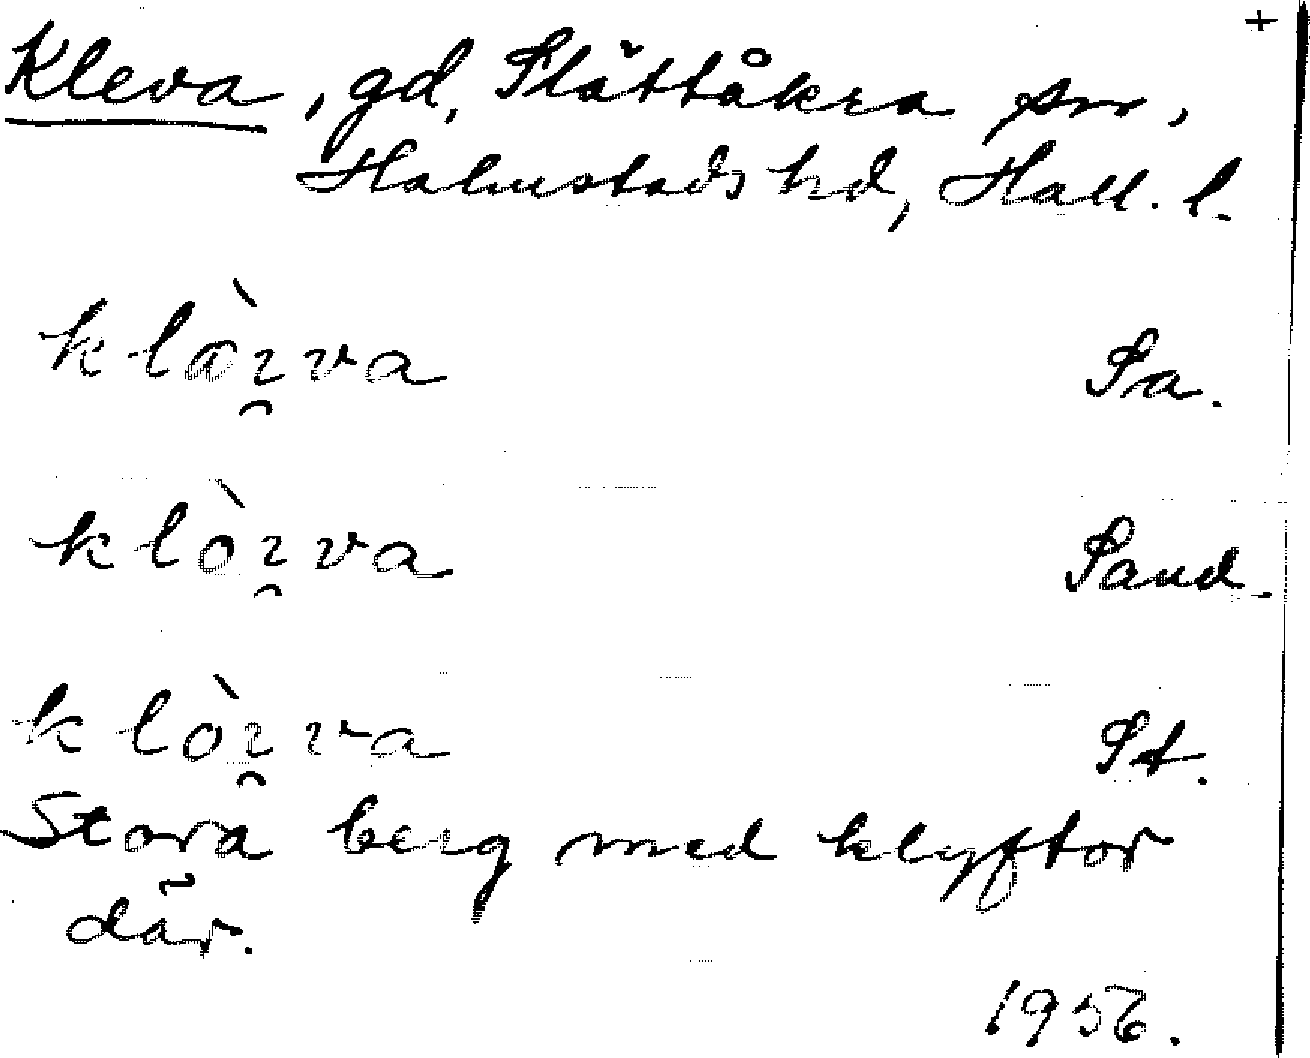 +
Kleva, gd, Slättåkra sn,
Halmstads hd, Hall. l.
klæ̀ɪ̯va Sa.
klòɪ̯va Sand.
klòɪ̯va St.
Stora berg med klyftor
där.
1956.